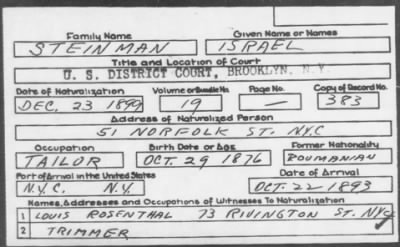 Family Name Given Name or Names
STEINMAN ISRAEL
Title and Location of Court
U. S. DISTRICT COURT, BROOKLYN, N.Y.
Date of Naturalization Volume or Bundle No. Page No. Copy of Record No.
DEC. 23 1899 19 — 383
Address of Naturalized Person
51 NORFOLK ST. N.Y.C
Occupation Birth Date or Age Former Nationality
TAILOR OCT. 29 1876 ROUMANIAN
Port of Arrival in the United States Date of Arrival
N.Y.C. N.Y. OCT. 22 1893
Names, Addresses and Occupations of Witnesses To Naturalization
1 LOUIS ROSENTHAL 73 RIVINGTON ST. NYC
2 TRIMMER